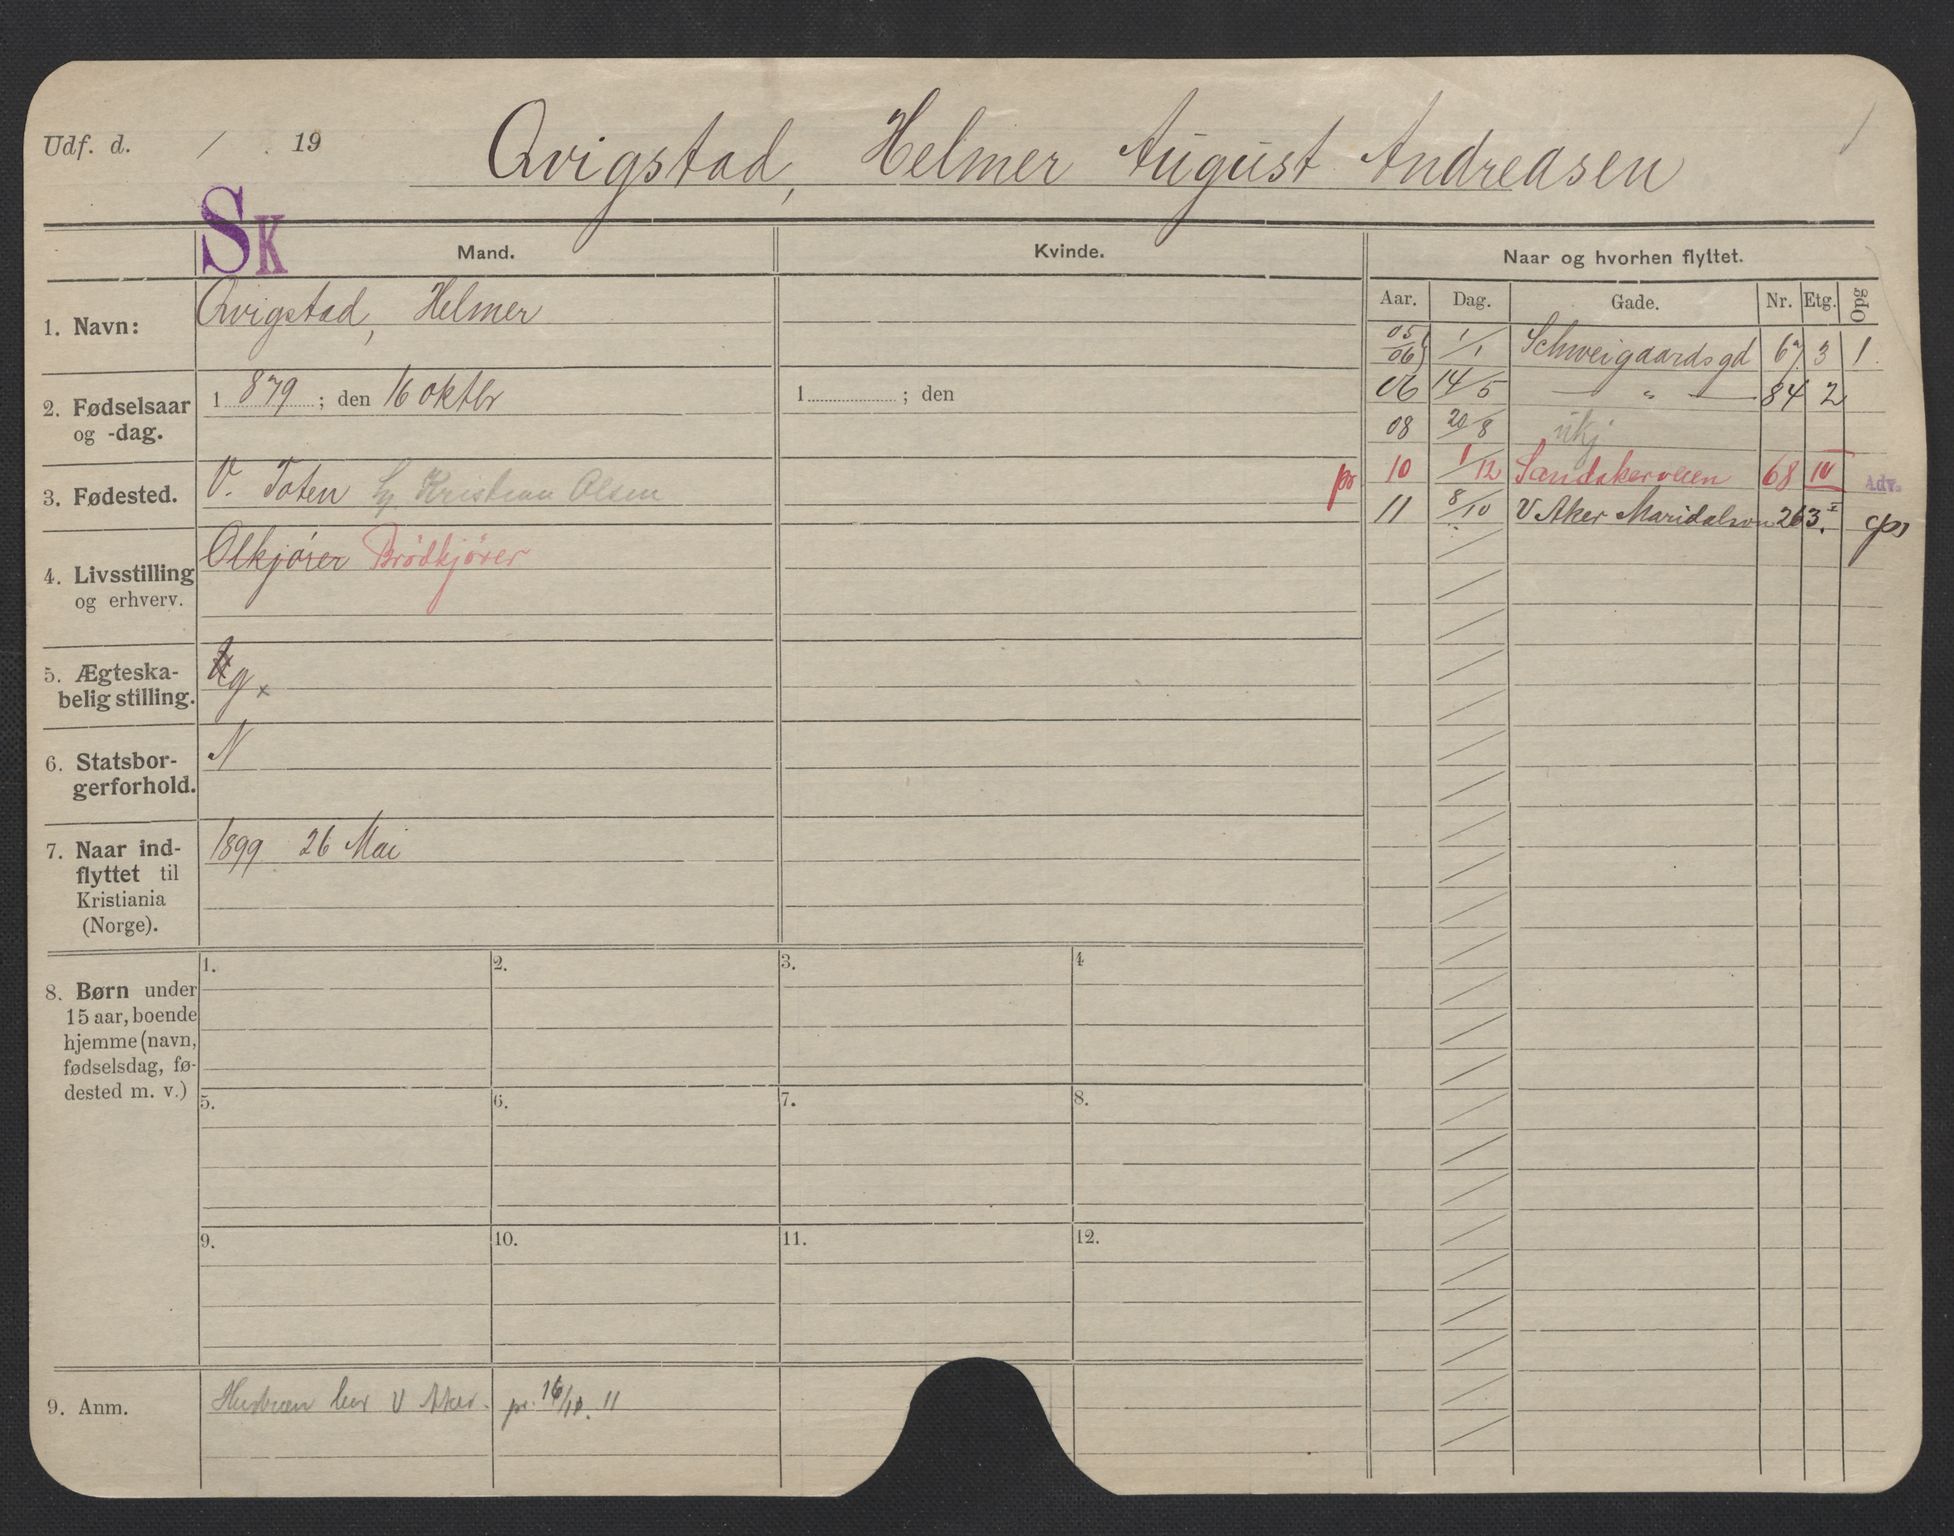 Udf. d. / 19
Qvigstad, Helmer August Andreasen
SK
Mand.
Kvinde.
Naar og hvorhen flyttet.
Aar. Dag. Gade. Nr. Etg. Opg
1. Navn: Qvigstad, Helmer
2. Fødselsaar
og -dag.
1 879 ; den 16 oktbr
1 ; den
3. Fødested. V. Toten Kristian Olsen
4. Livsstilling
og erhverv.
Olkjører Brødkjører
5. Ægteska-
belig stilling.
g x
6. Statsbor-
gerforhold.
N
7. Naar ind-
flyttet til
Kristiania
(Norge).
1899 26 Mai
8. Børn under
15 aar, boende
hjemme (navn,
fødselsdag, fø-
dested m. v.)
1. 2. 3. 4
5. 6. 7. 8.
9. 10. 11. 12.
9. Anm. bor V Aker. pr. 16/10. 11
05/06 1/1 Schweigaardsgd 67. 3 1.
06 14/5 — " — 84 2
08 20/8 ukj
pr 10 1/12 Sandakerveien 68 IV Adv.
11 8/10 V Aker Maridalsvn 263. I